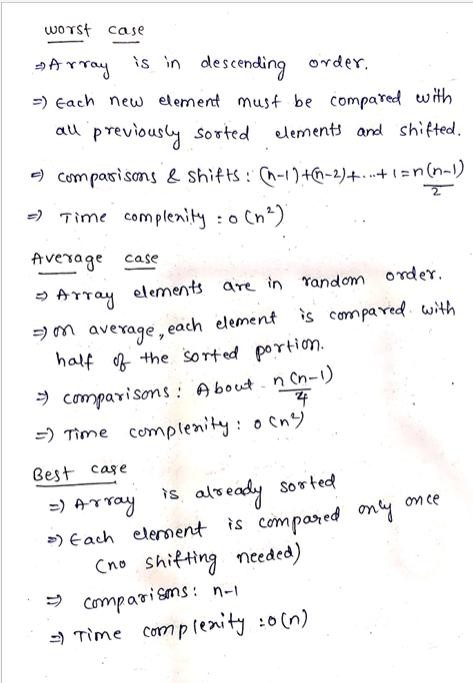 worst case
⇒ Array is in descending order.
⇒ Each new element must be compared with
all previously sorted elements and shifted.
⇒ comparisons & shifts : (n-1)+(n-2)+...+1 = n(n-1)/2
⇒ Time complexity : o(n²)
Average case
⇒ Array elements are in random order.
⇒ on average, each element is compared with
half of the sorted portion.
⇒ comparisons : About n(n-1)/4
⇒ Time complexity : o(n²)
Best case
⇒ Array is already sorted
⇒ Each element is compared only once
(no shifting needed)
⇒ comparisons : n-1
⇒ Time complexity : o(n)